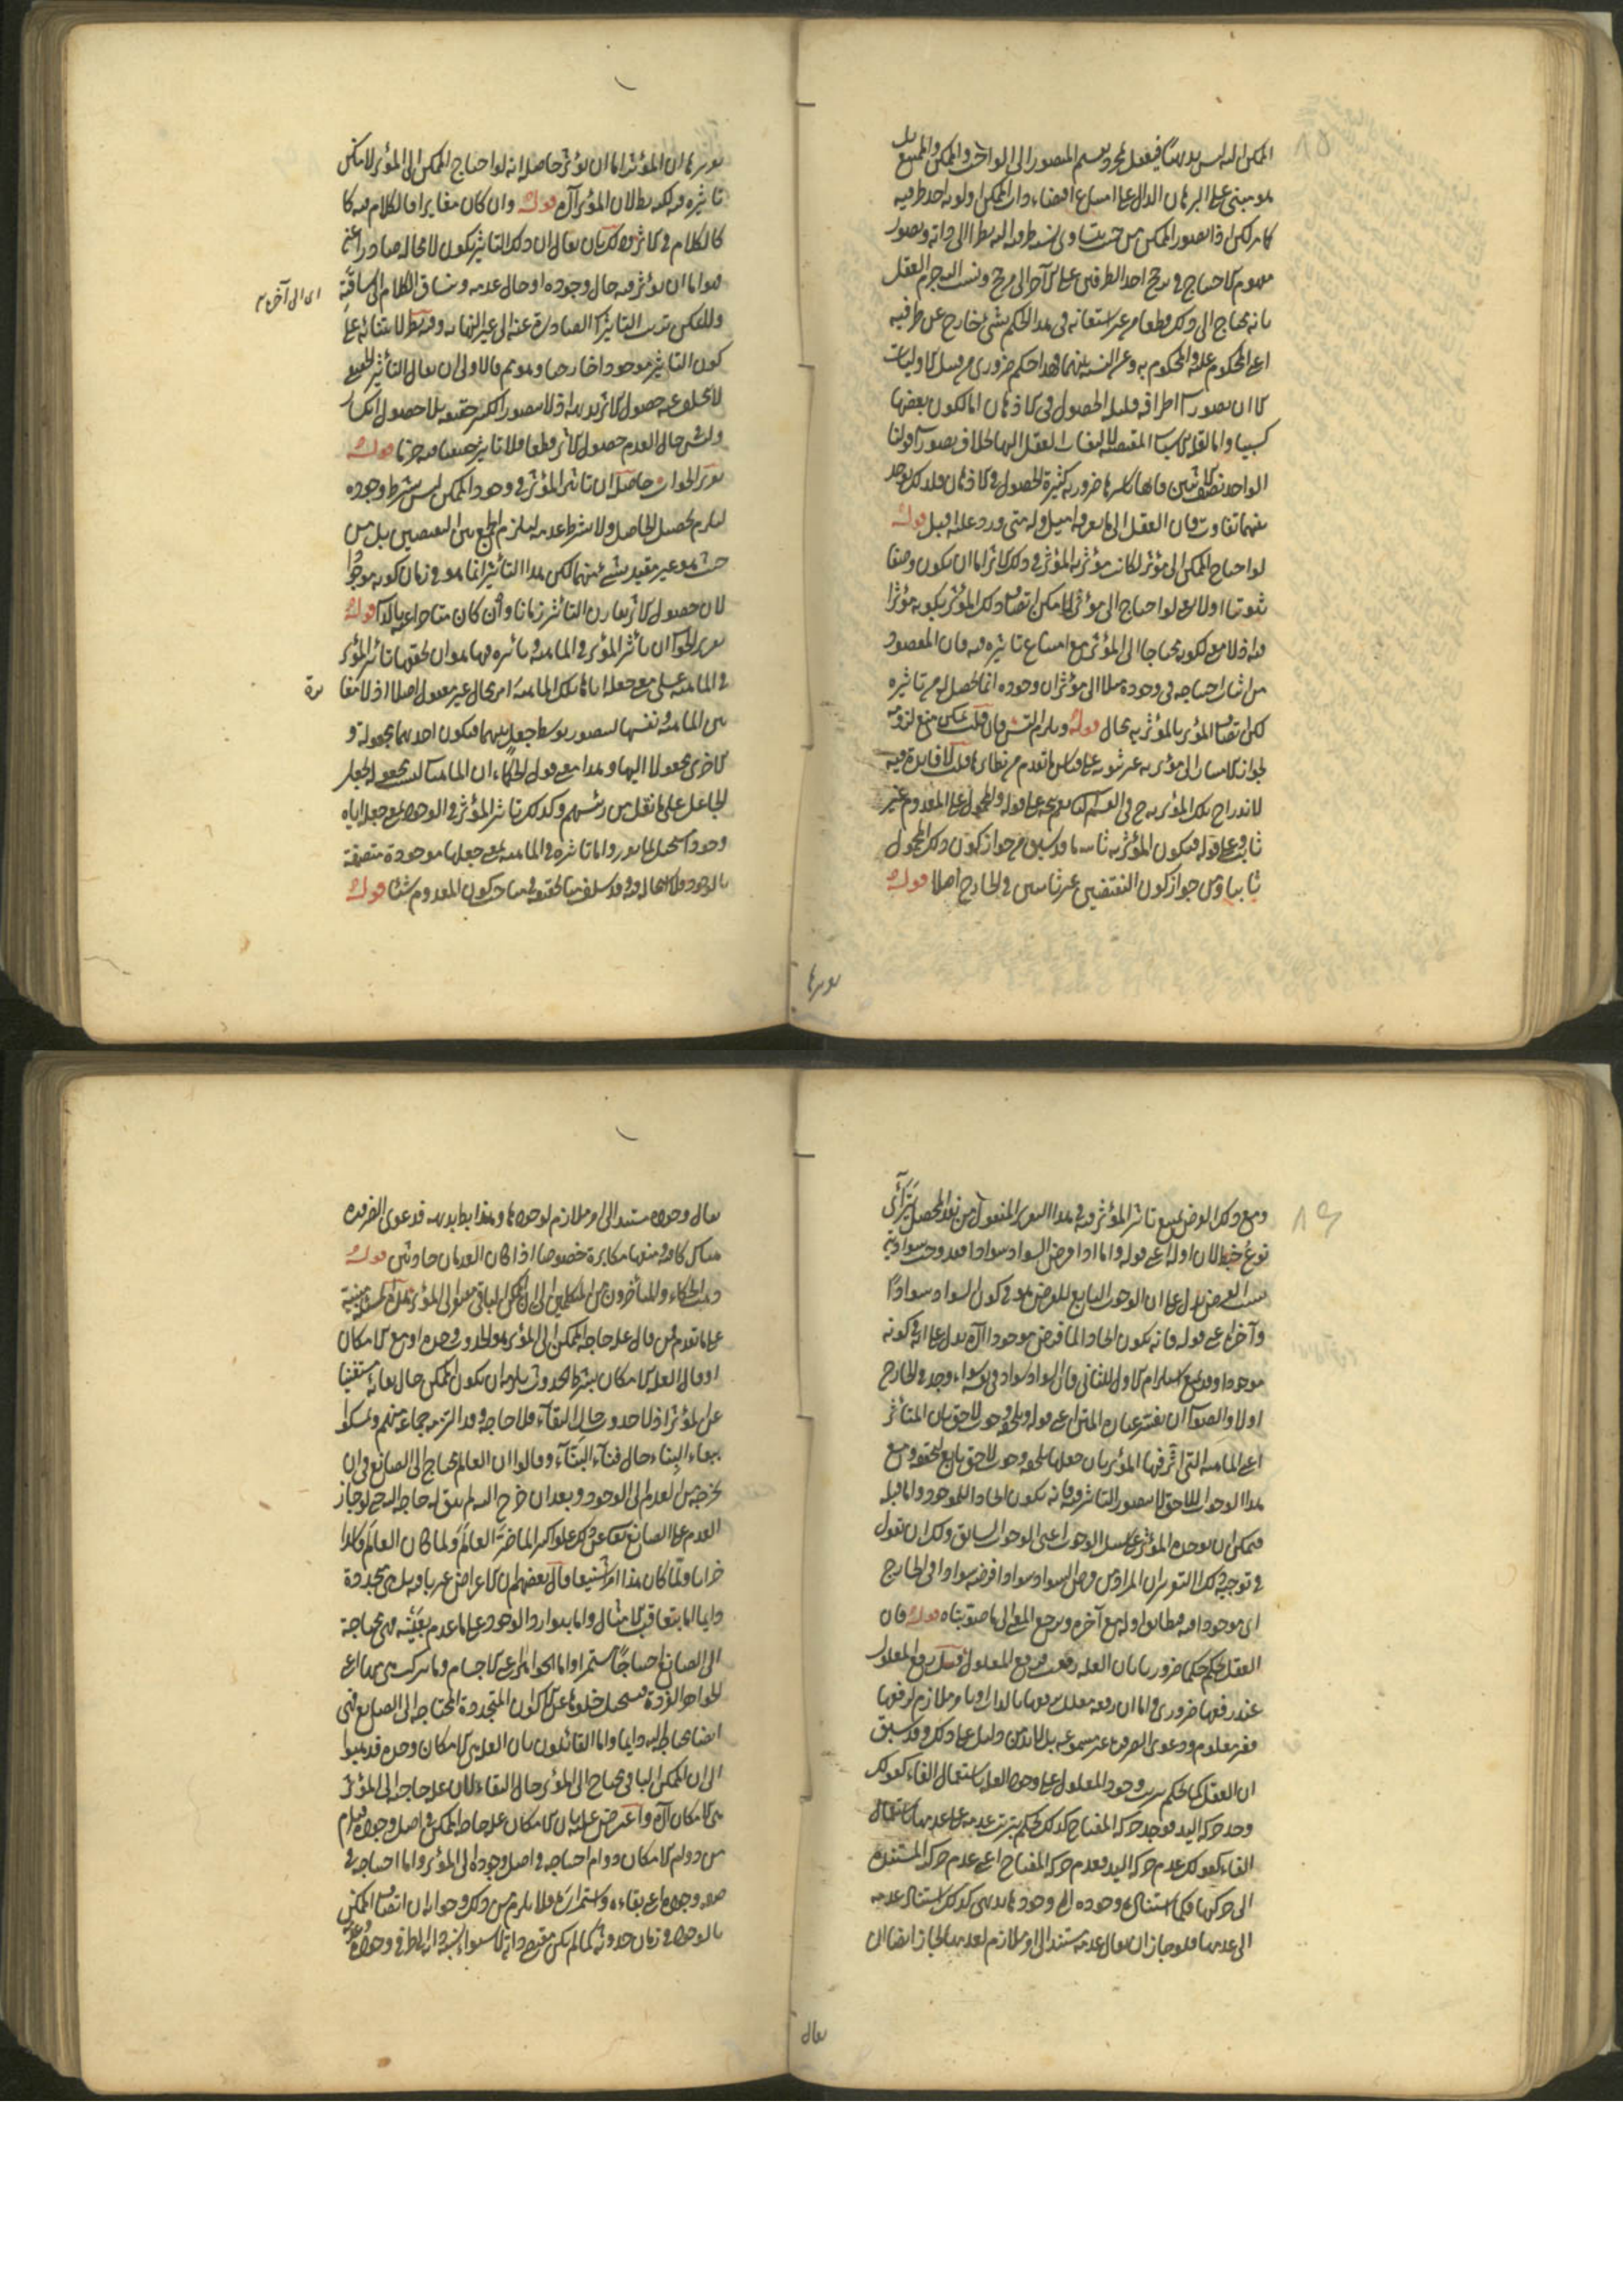 الممكن اليه ليس بديهيا فيفعل مجرد تقسيم المتصور الى الواجب والممكن والممتنع بل
هو مبنى على البرهان الدال على امتناع اقتضاء ذات الممكن اولوية احد طرفيه
كامر لكن اذا تصور الممكن من حيث يتساوى نسبة طرفيه اليه نظرا الى ذاته وتصور
مفهوم الاحتياج فى ترجح احد الطرفين على الآخر الى مرجح ونسب اليه جزم العقل
بانه محتاج الى ذلك قطعا من غير استعانة فى هذا الحكم بشئ خارج عن طرفيه
اعنى المحكوم عليه والمحكوم به وعن النسبة بينهما فهذا حكم ضرورى من قبيل الاوليات
الا ان تصورات اطرافه قليلة الحصول فى الاذهان اما لكون بعضها
كسبيا واما لقلة الاسباب المقتضية لالتفات العقل اليها بخلاف تصورات قولنا
الواحد نصف الاثنين فانها باسرها ضرورية كثيرة الحصول فى الاذهان فلذلك يوجد
بينهما تفاوت فان العقل الى ما يعرفه اميل وله متى ورد عليه اقبل قوله
لو احتاج الممكن الى مؤثر لكانت مؤثرية المؤثر فى ذلك الاثر اما ان يكون وصفا
ثبوتيا اولا يعنى لو احتاج الى مؤثر لامكن اتصاف ذلك المؤثر بكونه مؤثرا
فيه اذ لا معنى لكونه محتاجا الى المؤثر مع امتناع تاثيره فيه فان المقصود
من اثبات احتياجه فى وجوده مثلا الى مؤثر ان وجوده انما يحصل له من تاثيره
لكن اتصاف المؤثر بالمؤثرية محال قوله ويلزم التس فان قلت يمكن منع لزومه
لجواز الانتساب الى مؤثرية غير ثبوتية على قياس ما تقدم من نظائره قلت لا فايدة فيه
لاندراج تلك المؤثرية ح فى القسم الثانى نعم يتجه على قوله والمحمول على المعدوم غير
ثابت وعلى قوله فيكون المؤثرية ثابتة ما قد سبق من جواز كون ذلك المحمول
ثابتا ومن جواز كون النقيضين غير ثابتين فى الخارج اصلا قوله
تقريرها
تقريرها ان المؤثر اما ان يؤثر حاصله انه لو احتاج الممكن الى المؤثر لامكن
تاثيره فيه لكنه بط لان المؤثر آه قوله وان كان مغايرا فالكلام فيه كا
كالكلام فى الاثر وذلك بان يقال ان ذلك التاثير يكون لا محالة صادرا عنه
فهو اما ان يؤثر فيه حال وجوده او حال عدمه ونساق الكلام الى ساقته
اى الى آخره
وللممكن ترتب التاثيرات الصادرة عنه الى غير النهاية وفيه نظر لابتنائه على
كون التاثير موجودا خارجيا وهو مم فالاولى ان يقال التاثير الحقيقى
لا يتخلف عنه حصول الاثر بديهة اذ لا يتصور الكسر حقيقة بلا حصول انكسار
وليس حال العدم حصول الاثر قطعا فلا تاثير حقيقيا فيه جزما قوله
تقرير الجواب حاصله ان تاثير المؤثر فى وجود الممكن ليس بشرط وجوده
ليلزم تحصيل الحاصل ولا بشرط عدمه ليلزم الجمع بين النقيضين بل من
حيث هو غير مقيد بشئ منهما لكن هذا التاثير انما هو فى زمان كونه موجودا
لان حصول الاثر يقارن التأثير زمانا وان كان متاخرا عنه بالذات قوله
تقرير الجواب ان تأثير المؤثر فى الماهية وتأثيره فيها هو ان لحقها تاثير المؤثر
فى الماهية على معنى جعله اياها تلك الماهية امر محال غير معقول اصلا اذ لا مغا
يرة
بين الماهية ونفسها ليتصور توسط جعل بينهما فيكون احديهما مجعولة و
الاخرى مجعولا اليها وهذا معنى قول الحكماء ان الماهيات ليست بجعل
الجاعل على ما نقل من رئيسهم وكذلك تاثير المؤثر فى الوجود بمعنى جعله اياه
وجودا مستحيل لما مر واما تاثيره فى الماهية بمعنى جعلها موجودة متصفة
بالوجود فلا استحالة فيه وقد سلف منا تحقيقه فى مباحث كون المعدوم شيئا قوله
ومع ذلك الفرض يمتنع تاثير المؤثر فيه فى هذا التقرير المنقول من نقد المحصل يتراآى
نوع خبط لان اوله اعنى قوله واما اذا فرض السواد سوادا فقد وجب سواديته
بسبب الفرض يدل على ان الوجوب التابع للفرض هو فى كون السواد سوادا
وآخره اعنى قوله فانه يكون ايجادا لما فرض موجودا آه يدل على انه فى كونه
موجودا وقد يمنع استلزام الاول للثانى فان السواد سواد فى نفسه سواء وجد فى الخارج
اولا والصواب ان يفسر عبارة المتن اعنى قوله ويلحقه وجوب لاحق بان المتأثر
اعنى الماهية التى أثر فيها المؤثر بان جعلها يلحقه وجوب لاحق تابع لتحققه ومع
هذا الوجوب اللاحق لا يتصور التاثير فيه فانه يكون ايجادا للموجود واما قبله
فيمكن ان يوجده المؤثر على سبيل الوجوب اعنى الوجوب السابق ولك ان تقول
فى توجيه ذلك التقرير ان المراد من فرض السواد سوادا فرضه سوادا فى الخارج
اى موجودا فيه فيطابق اوله مع آخره ويرجع المعنى الى ما صوبناه قوله فان
العقل يحكم حكما ضروريا بان العلة رفعت فرفع المعلول قيل رفع المعلول
عند رفعها ضرورى واما ان رفعه معلل برفعها بالذات او بامر ملازم لرفعها
فغير معلوم ودعوى الضرورة غير مسموعة بل لا بد من دليل على ذلك وقد سبق
ان العقل كما يحكم بترتب وجود المعلول على وجود العلة باستعمال الفاء كقولك
وجد حركة اليد فوجد حركة المفتاح كذلك يحكم بترتب عدمه على عدمها باستعمال
الفاء كقولك عدم حركة اليد فعدم حركة المفتاح اعنى عدم حركة المستندة
الى حركتها فكما استناد وجوده الى وجودها بديهى كذلك استناد عدمه
الى عدمها فلو جاز ان يقال عدمه مستند الى امر ملازم لعدمها لجاز ايضا ان
يقال
يقال وجوده مستند الى امر ملازم لوجودها وهذا بط بديهة فدعوى الضرورة
هناك كافية ومنعها مكابرة خصوصا اذا كان العدمان حادثين قوله
ذهب الحكماء والمتأخرون من المتكلمين الى ان الممكن الباقى مفتقر الى المؤثر هذه المسئلة مبنية
على ما تقدم فمن قال علة حاجة الممكن الى المؤثر هو الحدوث وحده او مع الامكان
او قال العلة الامكان بشرط الحدوث يلزمه ان يكون الممكن حال بقائه مستغنيا
عن المؤثر اذ لا حدوث حال البقآء فلا حاجة وقد التزمه جماعة منهم وتمسكوا
ببقاء البناء حال فنآء البنّآء وقالوا ان العالم محتاج الى الصانع فى ان
يخرجه من العدم الى الوجود وبعد ان خرج اليه لم يبق له حاجة اليه حتى لو جاز
العدم على الصانع تعالى عن ذلك علوا كبيرا لما ضر العالم ولما كان العالم كذا
خرابا ولما كان هذا امرا شنيعا قال بعضهم ان الاعراض غير باقية بل هى متجددة
دايما اما بتعاقب الامثال واما بتوارد الوجود على ما عدم بعينه فهى محتاجة
الى الصانع احتياجا مستمرا واما الجواهر اعنى الاجسام وما تتركب هى منه اعنى
الجواهر الفردة فيستحيل خلوها عن الاكوان المتجددة المحتاجة الى الصانع فهى
ايضا محتاجة اليه دايما واما القائلون بان العلة هى الامكان وحده فذهبوا
الى ان الممكن الباقى يحتاج الى المؤثر حال البقاء لان علة حاجته الى المؤثر
هى الامكان آه واعترض عليه بان الامكان علة حاجة الممكن فى اصل وجوده فيلزم
من دوام الامكان دوام احتياجه فى اصل وجوده الى المؤثر واما احتياجه فى
صفة وجوده اعنى بقاءه واستمراره فلا يلزم من ذلك وجوابه ان اتصاف الممكن
بالوجود فى زمان حدوثه كما لم يكن مقتضى ذاته لاستواء نسبته الى طرفى وجوده وعدمه